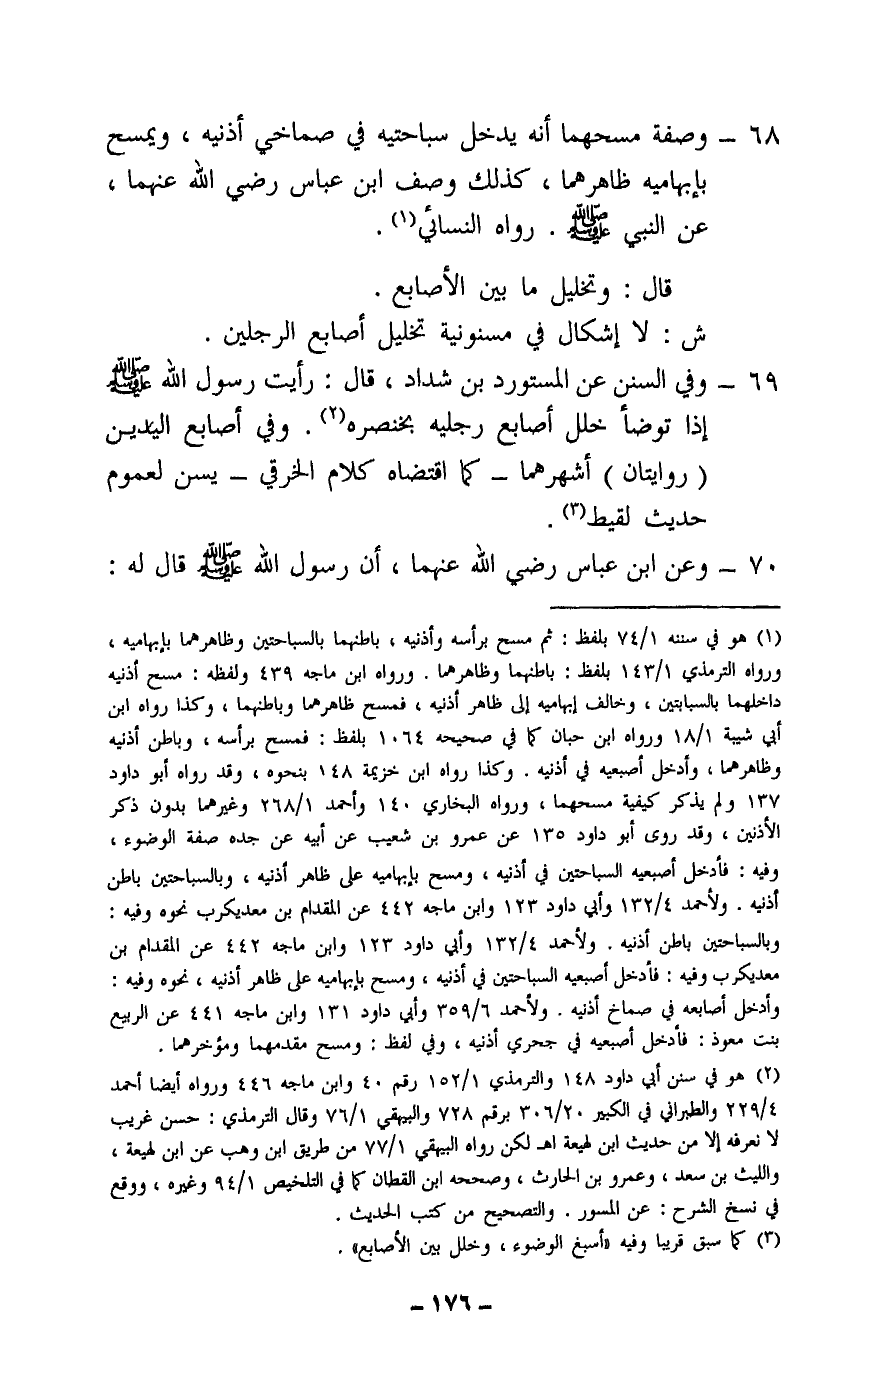 ٦٨ – وصفة مسحهما أنه يدخل سباحتيه في صماخي أذنيه ، ويمسح
بإبهاميه ظاهرهما ، كذلك وصف ابن عباس رضي الله عنهما ،
عن النبي ﷺ . رواه النسائي(١) .
قال : وتخليل ما بين الأصابع .
ش : لا إشكال في مسنونية تخليل أصابع الرجلين .
٦٩ – وفي السنن عن المستورد بن شداد ، قال : رأيت رسول الله ﷺ
إذا توضأ خلل أصابع رجليه بخنصره(٢) . وفي أصابع اليدين
( روايتان ) أشهرهما – كما اقتضاه كلام الخرقي – يسن لعموم
حديث لقيط(٣) .
٧٠ – وعن ابن عباس رضي الله عنهما ، أن رسول الله ﷺ قال له :
(١) هو في سننه ٧٤/١ بلفظ : ثم مسح برأسه وأذنيه ، باطنهما بالسباحتين وظاهرهما بإبهاميه ،
ورواه الترمذي ١٤٣/١ بلفظ : باطنهما وظاهرهما . ورواه ابن ماجه ٤٣٩ ولفظه : مسح أذنيه
داخلهما بالسبابتين ، وخالف إبهاميه إلى ظاهر أذنيه ، فمسح ظاهرهما وباطنهما ، وكذا رواه ابن
أبي شيبة ١٨/١ ورواه ابن حبان كما في صحيحه ١٠٦٤ بلفظ : فمسح برأسه ، وباطن أذنيه
وظاهرهما ، وأدخل أصبعيه في أذنيه . وكذا رواه ابن خزيمة ١٤٨ بنحوه ، وقد رواه أبو داود
١٣٧ ولم يذكر كيفية مسحهما ، ورواه البخاري ١٤٠ وأحمد ٢٦٨/١ وغيرهما بدون ذكر
الأذنين ، وقد روى أبو داود ١٣٥ عن عمرو بن شعيب عن أبيه عن جده صفة الوضوء ،
وفيه : فأدخل أصبعيه السباحتين في أذنيه ، ومسح بإبهاميه على ظاهر أذنيه ، وبالسباحتين باطن
أذنيه . ولأحمد ١٣٢/٤ وأبي داود ١٢٣ وابن ماجه ٤٤٢ عن المقدام بن معديكرب نحوه وفيه :
وبالسباحتين باطن أذنيه . ولأحمد ١٣٢/٤ وأبي داود ١٢٣ وابن ماجه ٤٤٢ عن المقدام بن
معديكرب وفيه : فأدخل أصبعيه السباحتين في أذنيه ، ومسح بإبهاميه على ظاهر أذنيه ، نحوه وفيه :
وأدخل أصابعه في صماخ أذنيه . ولأحمد ٣٥٩/٦ وأبي داود ١٣١ وابن ماجه ٤٤١ عن الربيع
بنت معوذ : فأدخل أصبعيه في جحري أذنيه ، وفي لفظ : ومسح مقدمهما ومؤخرهما .
(٢) هو في سنن أبي داود ١٤٨ والترمذي ١٥٢/١ رقم ٤٠ وابن ماجه ٤٤٦ ورواه أيضا أحمد
٢٢٩/٤ والطبراني في الكبير ٣٠٦/٢٠ برقم ٧٢٨ والبيهقي ٧٦/١ وقال الترمذي : حسن غريب
لا نعرفه إلا من حديث ابن لهيعة اهـ لكن رواه البيهقي ٧٧/١ من طريق ابن وهب عن ابن لهيعة ،
والليث بن سعد ، وعمرو بن الحارث ، وصححه ابن القطان كما في التلخيص ٩٤/١ وغيره ، ووقع
في نسخ الشرح : عن المسور . والتصحيح من كتب الحديث .
(٣) كما سبق قريبا وفيه «أسبغ الوضوء ، وخلل بين الأصابع» .
– ١٧٦ –